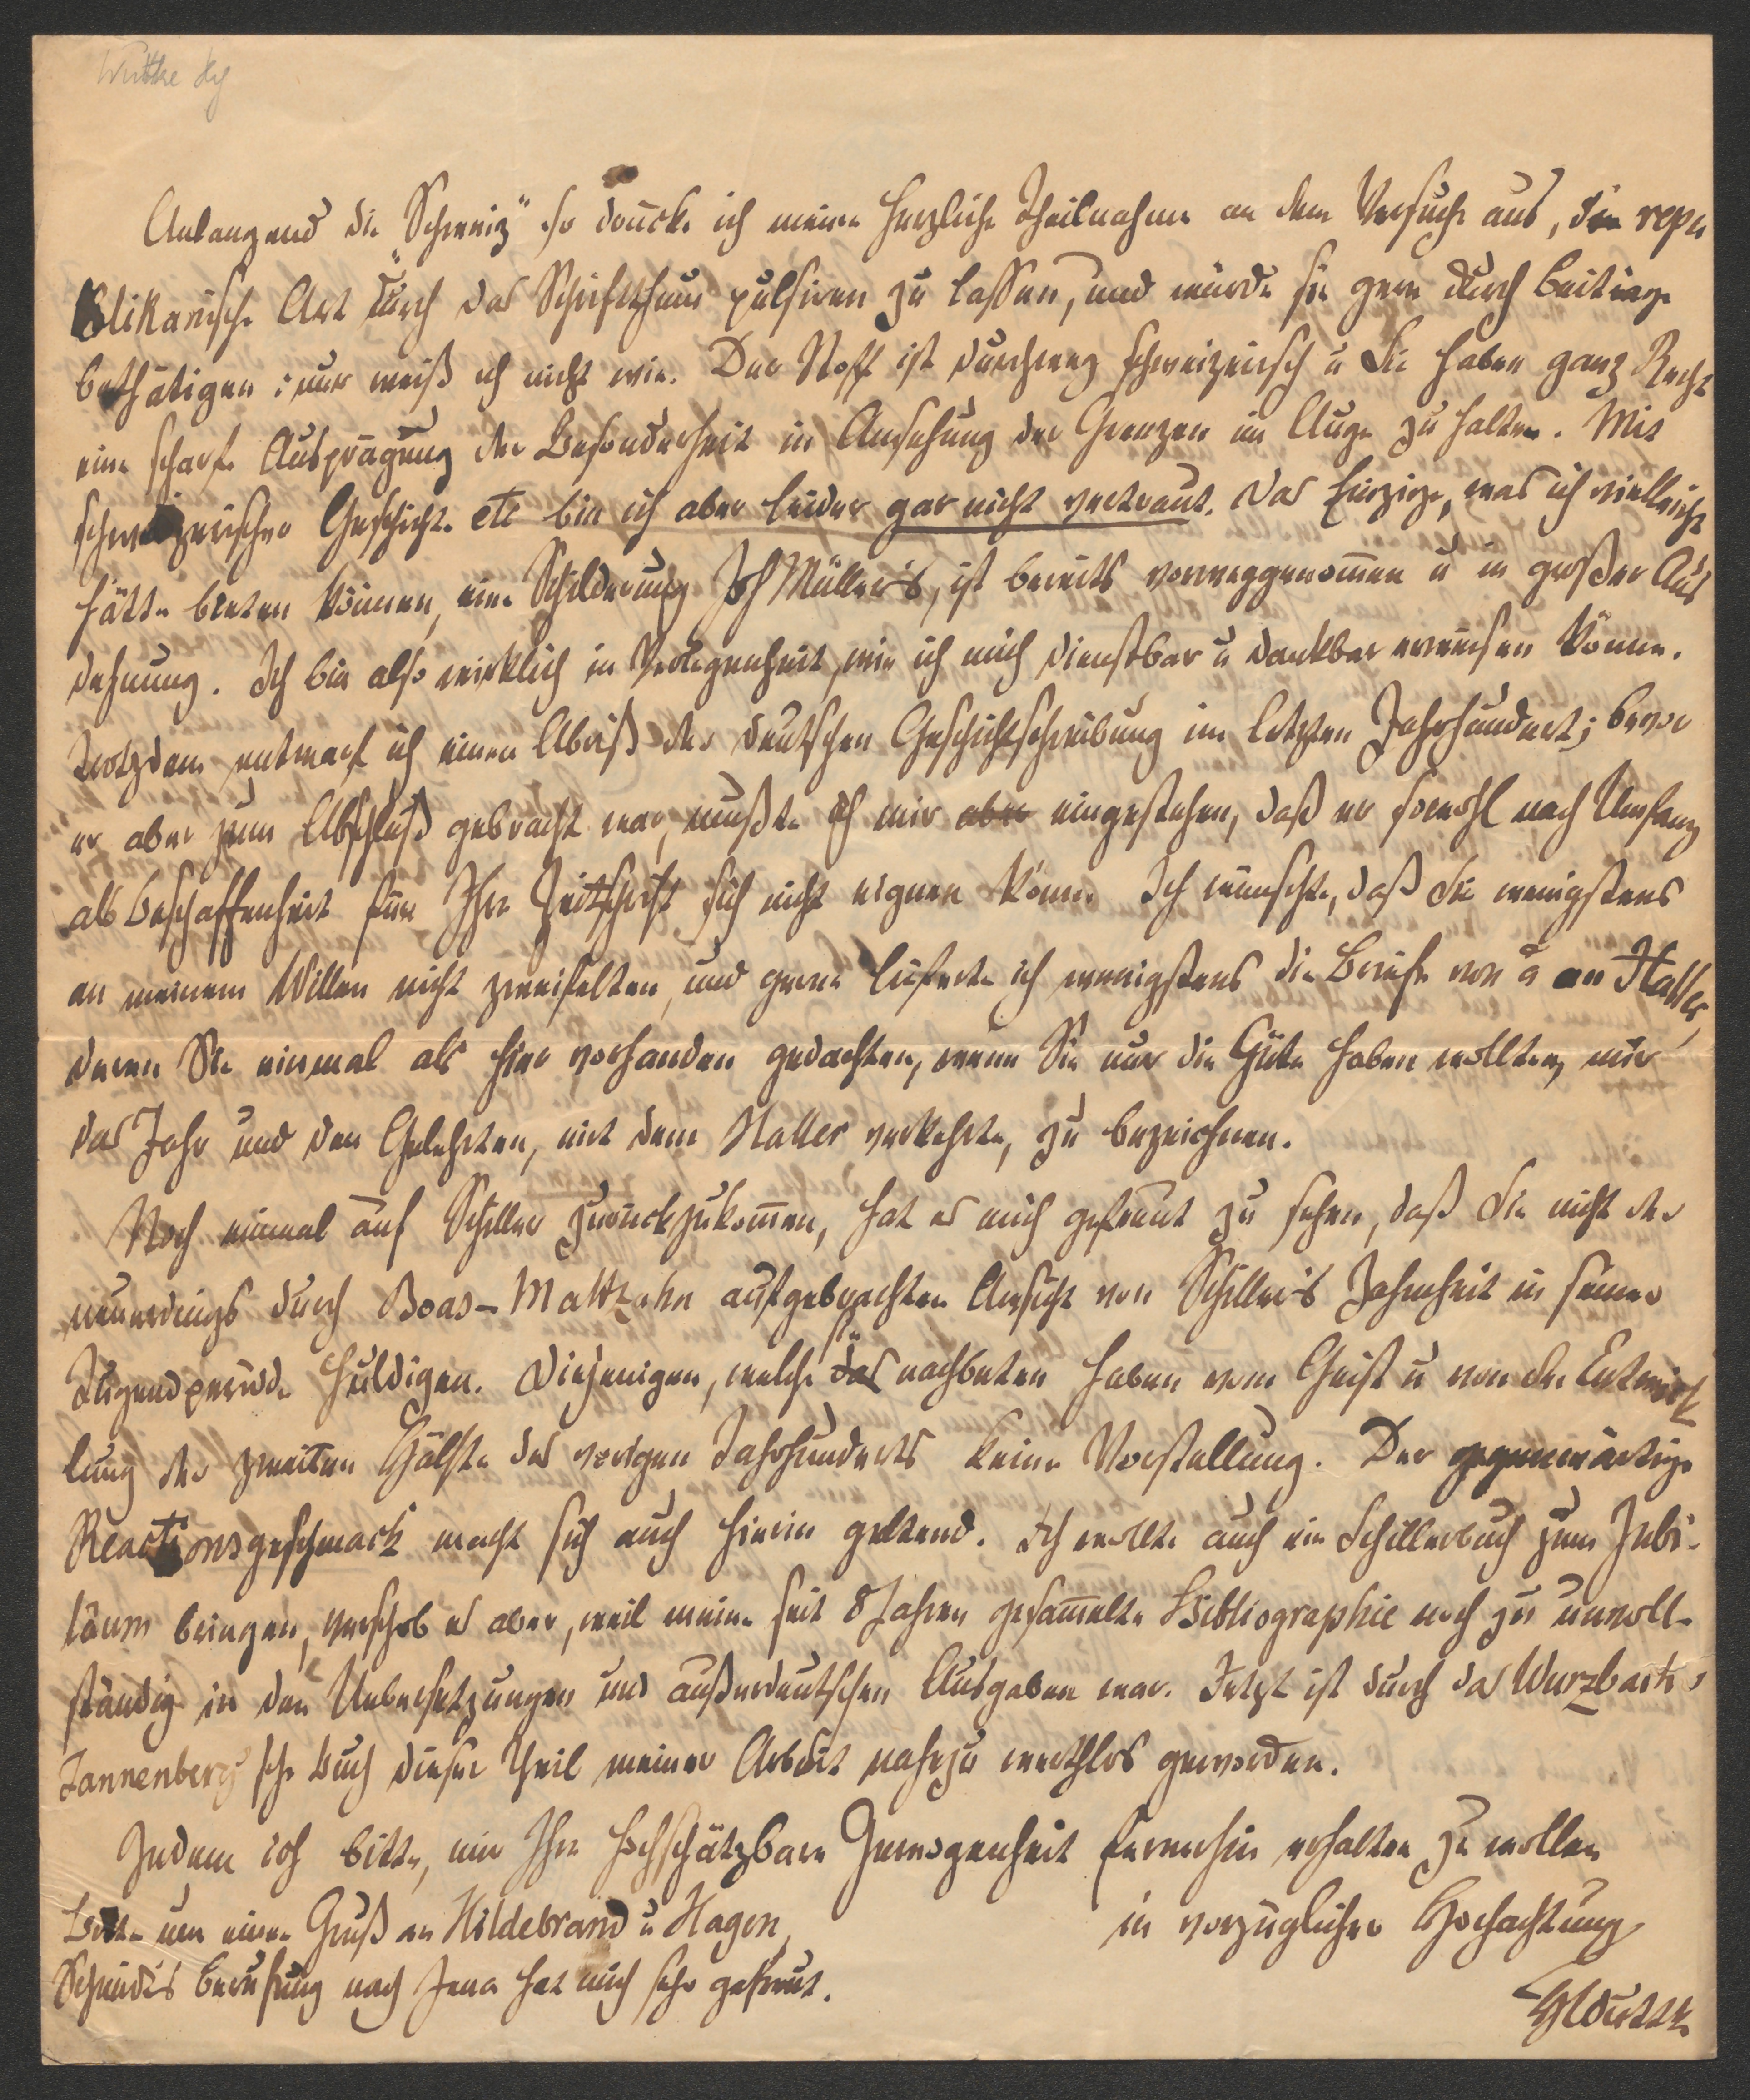 Wuttke
Anlangend die "Schweiz" so drücke ich meine herzliche Theilnahme an dem Versuche aus, die repu
blikanische Art durch das Schriftthum pulsiren zu lassen, und würde sie gern durch Beiträge
bethätigen; nur weiß ich nicht wie. Der Stoff ist durchweg schweizerisch u Sie haben ganz Recht
eine scharfe Ausprägung der Besonderheit in Ansehung der Grenzen im Auge zu halten. Mit
schweizerischer Geschichte etc bin ich aber leider gar nicht vertraut. Das Einzige, was ich vielleicht
hätte bieten können, eine Schilderung Joh Müller's, ist bereits vorweggenommen u in großer Aus
dehnung. Ich bin also wirklich in Verlegenheit, wie ich mich dienstbar u dankbar erweisen könne.
Trotzdem entwarf ich einen Abriß der deutschen Geschichtschreibung im letzten Jahrhundert; bevor
er aber zum Abschluß gebracht war, mußte ich mir aber eingestehen, daß er sowohl nach Umfang
als Beschaffenheit für Ihre Zeitschrift sich nicht eignen könne. Ich wünschte, daß Sie wenigstens
an meinem Willen nicht zweifelten, und gerne lieferte ich wenigstens die Briefe von u an Haller,
deren Sie einmal als hier vorhanden gedachten, wenn Sie nur die Güte haben wollten, mir
das Jahr und den Gelehrten, mit dem Haller verkehrte, zu bezeichnen.
Noch einmal auf Schiller zurückzukommen, hat es mich gefreut zu sehen, daß Sie nicht der
neuerdings durch Boas-Maltzahn aufgebrachten Ansicht von Schiller's Zahmheit in seiner
Jugendperiode huldigen. Diejenigen, welche das nachbeten haben vom Geist u von der Entwick
lung der zweiten Hälfte des vorigen Jahrhunderts keine Vorstellung. Der gegenwärtige
Reactionsgeschmack macht sich auch hierin geltend. Ich wollte auch ein Schillerbuch zum Jubi-
läum bringen, verschob es aber, weil meine seit 8 Jahren gesammelte Bibliographie noch zu unvoll-
ständig in den Uebersetzungen und außerdeutschen Ausgaben war. Jetzt ist durch das Wurzbach
Tannenberg'sche Buch dieser Theil meiner Arbeit nahezu werthlos geworden.
Indem ich bitte, mir Ihre hochschätzbare Gewogenheit fernerhin erhalten zu wollen
in vorzüglicher Hochachtung
HWuttke
Bitte um einen Gruß an Hildebrand u Hagen,
Schmidts Berufung nach Jena hat mich sehr gefreut.